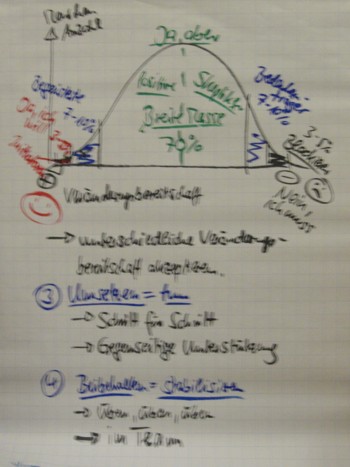 Menschen
Anzahl
Ja, aber
positive ! Skeptiker
Breite Masse
70%
Begeisterte
7-10%
Ja, ich
will
3-5%
Bedenken-
träger
7-10%
3-5%
Nein,
ich muss
Veränderungsbereitschaft
→ unterschiedliche Veränderungs-
bereitschaft akzeptieren.
③ Umsetzen = tun
→ Schritt für Schritt
→ Gegenseitige Unterstützung
④ Beibehalten = stabilisieren
→ Üben, üben, üben
→ im Team